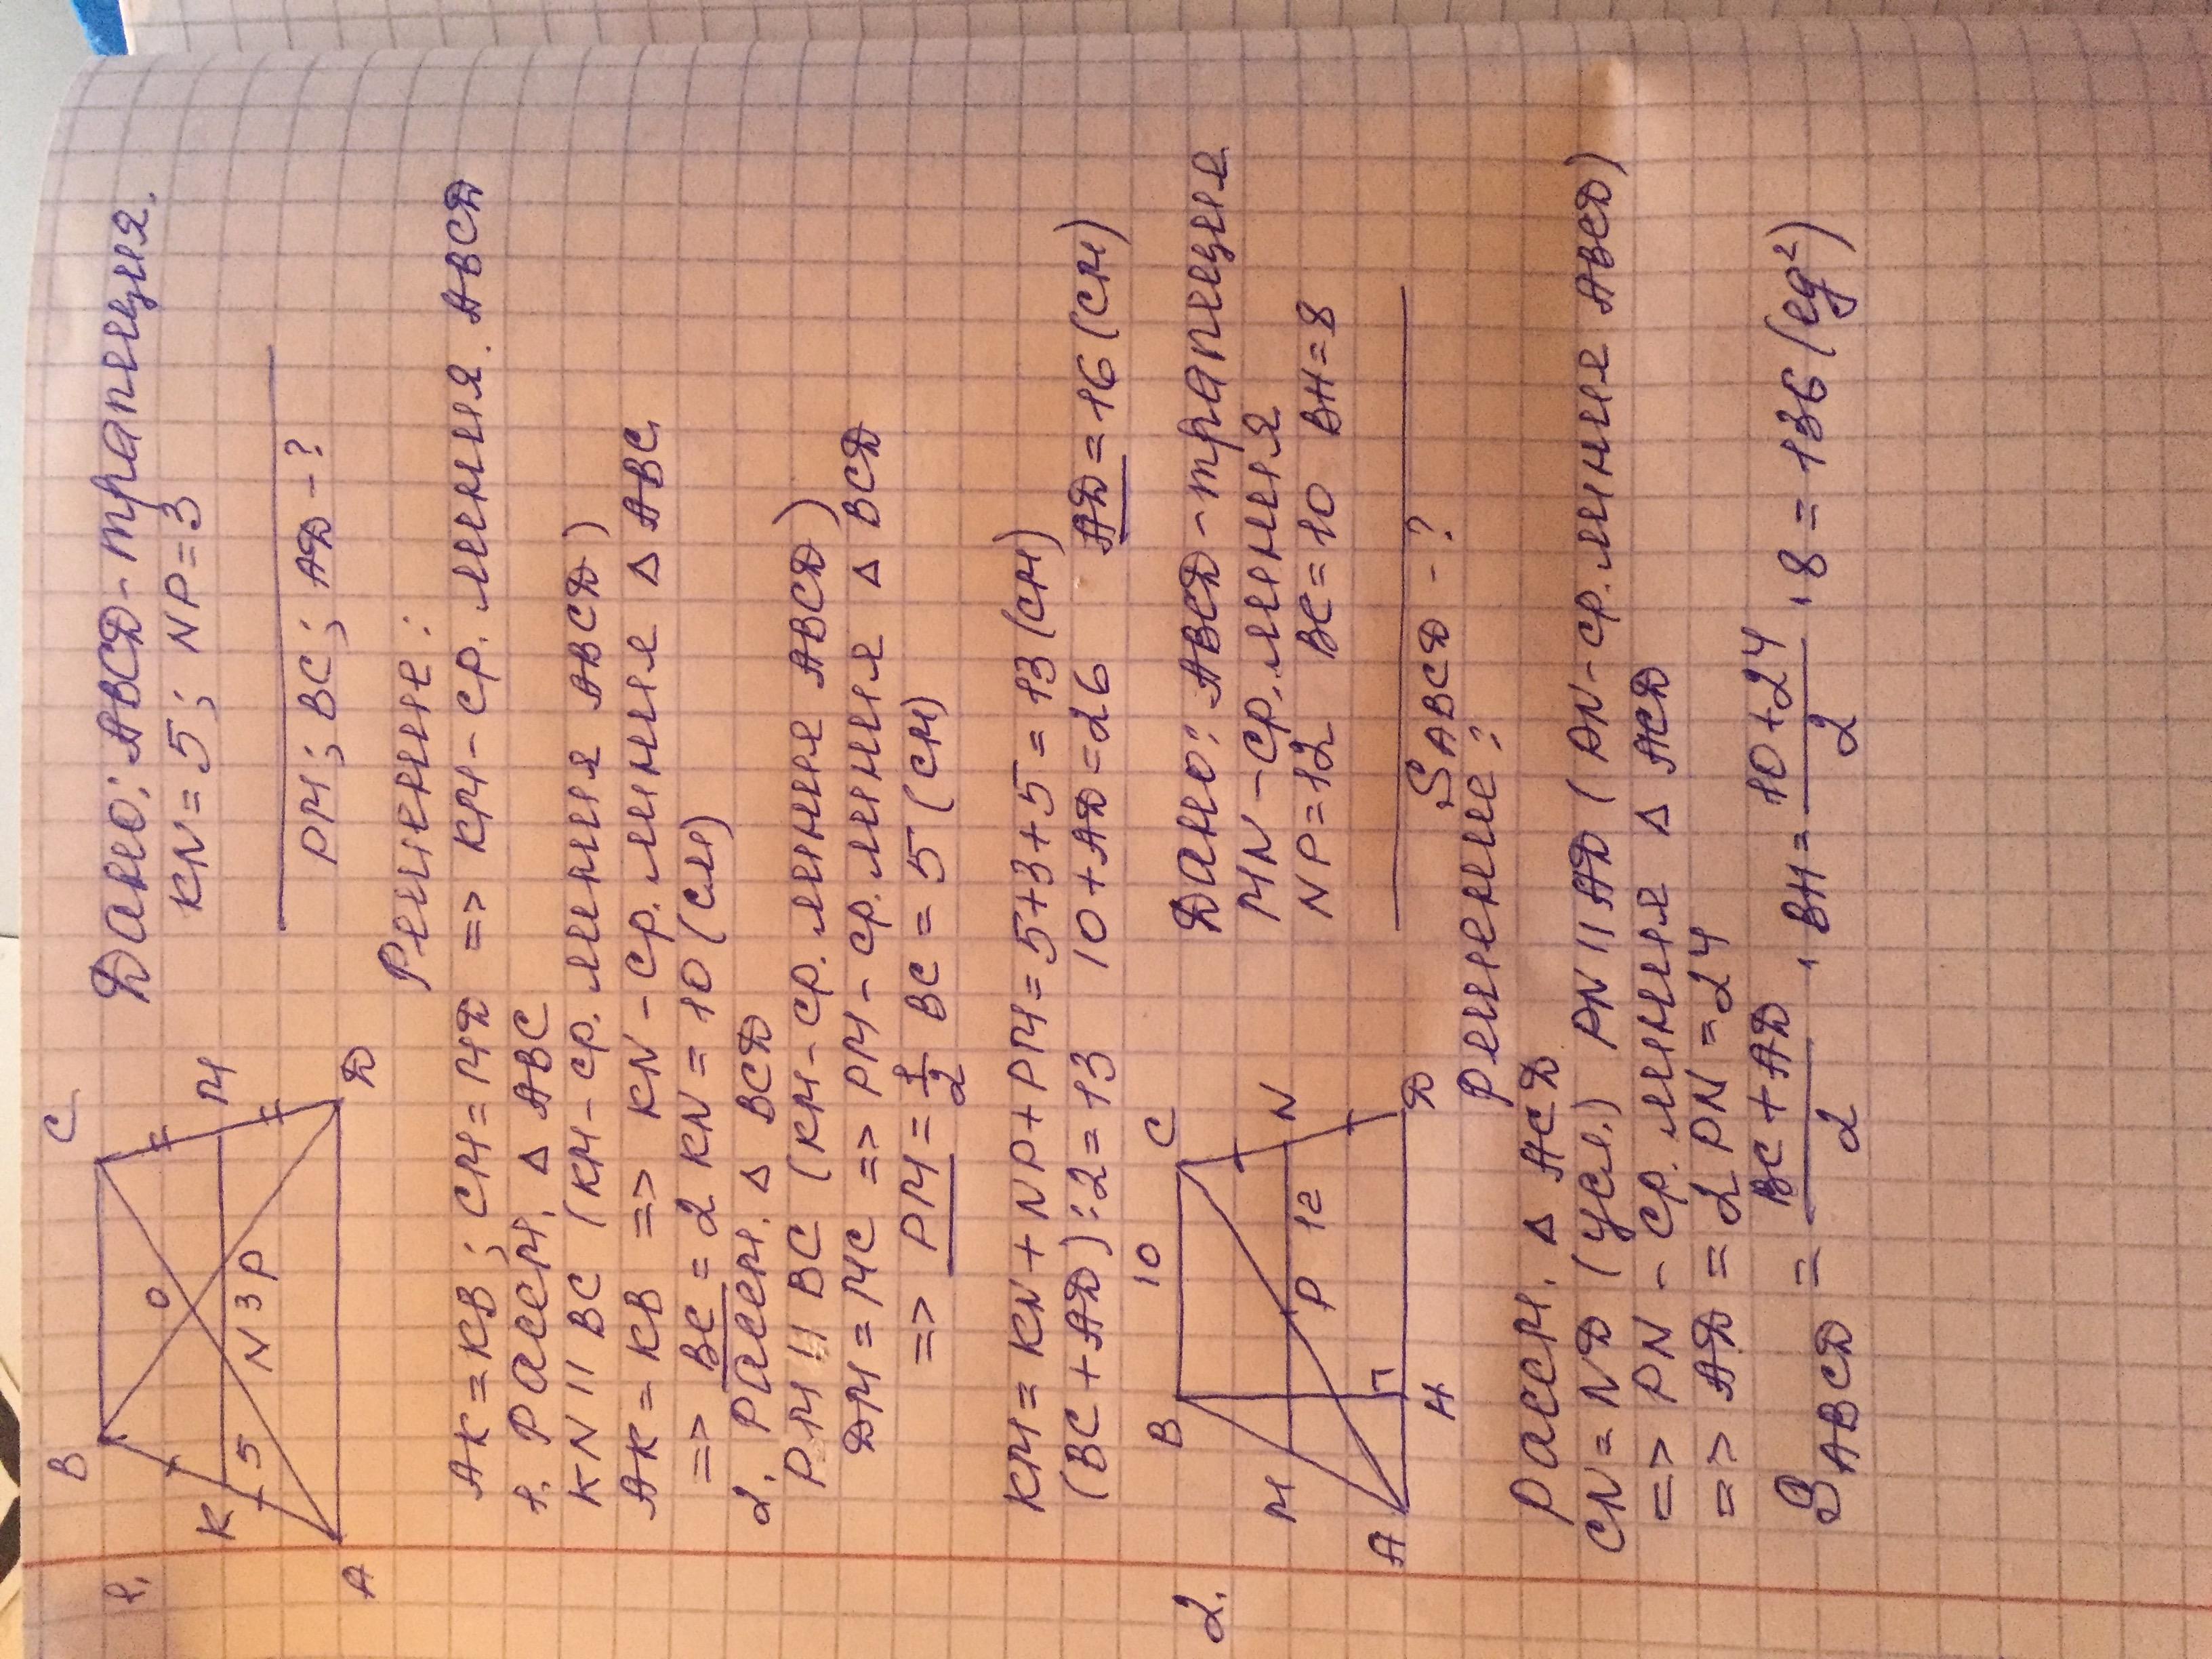 1.
B
C
O
K
5
N
3
P
M
A
D
Дано: ABCD - трапеция.
KN = 5; NP = 3
PM; BC; AD - ?
Решение:
AK = KB; CM = MD => KM - ср. линия ABCD
1. Рассм. Δ ABC
KN || BC (KM - ср. линия ABCD)
AK = KB => KN - ср. линия Δ ABC
=> BC = 2 KN = 10 (см)
2. Рассм. Δ BCD
PM || BC (KM - ср. линия ABCD)
DM = MC => PM - ср. линия Δ BCD
=> PM = 1/2 BC = 5 (см)
KM = KN + NP + PM = 5 + 3 + 5 = 13 (см)
(BC + AD) : 2 = 13 10 + AD = 26 AD = 16 (см)
2.
B
10
C
M
P
12
N
A
H
D
Дано: ABCD - трапеция
MN - ср. линия
NP = 12 BC = 10 BH = 8
S ABCD - ?
Решение:
Рассм. Δ ACD
CN = ND (усл.) PN || AD (PN - ср. линия ABCD)
=> PN - ср. линия Δ ACD
=> AD = 2 PN = 24
S ABCD = (BC + AD)/2 · BH = (10 + 24)/2 · 8 = 136 (ед²)